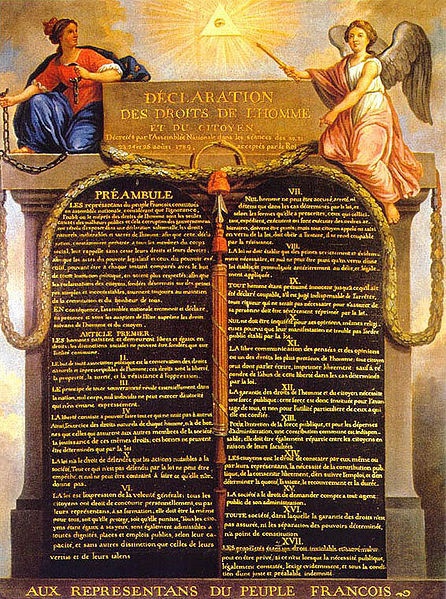 DÉCLARATION
DES DROITS DE L'HOMME
ET DU CITOYEN,
Décrétés par l'Assemblée Nationale dans les séances des 20, 21
23, 24 et 26 août 1789, acceptés par le Roi
PRÉAMBULE
LES représentans du peuple François, constitués
en assemblée nationale, considérant que l'ignorance,
l'oubli ou le mépris des droits de l'homme sont les seules
causes des malheurs publics et de la corruption des gouvernemens
ont résolu d'exposer dans une déclaration solemnelle, les droits
naturels, inaliénables et sacrés de l'homme; afin que cette décla-
ration, constamment présente à tous les membres du corps
social, leur rappelle sans cesse leurs droits et leurs devoirs;
afin que les actes du pouvoir législatif et ceux du pouvoir exé-
cutif, pouvant être à chaque instant comparés avec le but
de toute institution politique, en soient plus respectés; afin que
les réclamations des citoyens, fondées désormais sur des princi-
pes simples et incontestables, tournent toujours au maintien
de la constitution et du bonheur de tous.
EN conséquence, l'assemblée nationale reconnoit et déclare,
en présence et sous les auspices de l'Être suprême les droits
suivans de l'homme et du citoyen.
ARTICLE PREMIER.
LES hommes naissent et demeurent libres et égaux en
droits; les distinctions sociales ne peuvent être fondées que sur
l'utilité commune.
II.
LE but de toute association politique est la conservation des droits
naturels et imprescriptibles de l'homme; ces droits sont la liberté,
la propriété, la sureté, et la résistance à l'oppression.
III.
LE principe de toute souveraineté réside essentiellement dans
la nation, nul corps, nul individu ne peut exercer d'autorité
qui n'en émane expressément.
IV.
LA liberté consiste à pouvoir faire tout ce qui ne nuit pas à autrui
Ainsi, l'exercice des droits naturels de chaque homme, n'a de bor-
nes que celles qui assurent aux autres membres de la société
la jouissance de ces mêmes droits; ces bornes ne peuvent
être déterminées que par la loi
V.
LA loi n'a le droit de défendre que les actions nuisibles à la
société. Tout ce qui n'est pas défendu par la loi ne peut être
empêché, et nul ne peut être contraint à faire ce qu'elle n'or-
donne pas.
VI.
LA loi est l'expression de la volonté générale; tous les
citoyens ont droit de concourir personnellement, ou par
leurs représentans, à sa formation; elle doit être la même
pour tous, soit qu'elle protege, soit qu'elle punisse. Tous les cito-
yens étant égaux à ses yeux, sont également admissibles à
toutes dignités, places et emplois publics, selon leur ca-
pacité, et sans autres distinctions que celles de leurs
vertus et de leurs talens
VII.
NUL homme ne peut être accusé, arreté ni
détenu que dans les cas déterminés par la loi, et
selon les formes qu'elle a prescrites, ceux qui sollici-
tent, expédient, exécutent ou font exécuter des ordres ar-
bitraires, doivent être punis; mais tout citoyen appelé ou saisi
en vertu de la loi, doit obéir à l'instant, il se rend coupable
par la résistance.
VIII.
LA loi ne doit établir que des peines strictement et évidem-
ment nécessaires, et nul ne peut être puni qu'en vertu d'une
loi établie et promulguée antérieurement au délit, et légale-
ment appliquée.
IX.
TOUT homme étant présumé innocent jusqu'à ce qu'il ait
été déclaré coupable, s'il est jugé indispensable de l'arrêter,
toute rigueur qui ne seroit pas nécessaire pour s'assurer de
sa personne doit être sévèrement réprimée par la loi.
X.
NUL ne doit être inquiété pour ses opinions, mêmes religi-
euses pourvu que leur manifestation ne trouble pas l'ordre
public établi par la loi.
XI.
LA libre communication des pensées et des opinions
est un des droits les plus précieux de l'homme; tout citoyen
peut donc parler écrire, imprimer librement, sauf à ré-
pondre de l'abus de cette liberté dans les cas déterminés
par la loi.
XII.
LA garantie des droits de l'homme et du citoyen nécessite
une force publique; cette force est donc instituée pour l'avan-
tage de tous, et non pour l'utilité particulière de ceux à qui
elle est confiée.
XIII.
POUR l'entretien de la force publique, et pour les dépenses
d'administration, une contribution commune est indispen-
sable; elle doit être également répartie entre les citoyens en
raison de leurs facultés.
XIV.
LES citoyens ont le droit de constater par eux même ou
par leurs représentans, la nécessité de la contribution pub-
lique, de la consentir librement, d'en suivre l'emploi, et d'en
déterminer la quotité, l'assiette, le recouvrement et la durée.
XV.
LA société a le droit de demander compte à tout agent
public de son administration.
XVI.
TOUTE société, dans laquelle la garantie des droits n'est
pas assurée, ni la séparation des pouvoirs déterminée,
n'a point de constitution
XVII.
LES propriétés étant un droit inviolable et sacré, nul ne
peut en être privé, si ce n'est lorsque la nécessité publique,
légalement constatée, l'exige évidemment, et sous la condi-
tion d'une juste et préalable indemnité.
AUX REPRESENTANS DU PEUPLE FRANCOIS